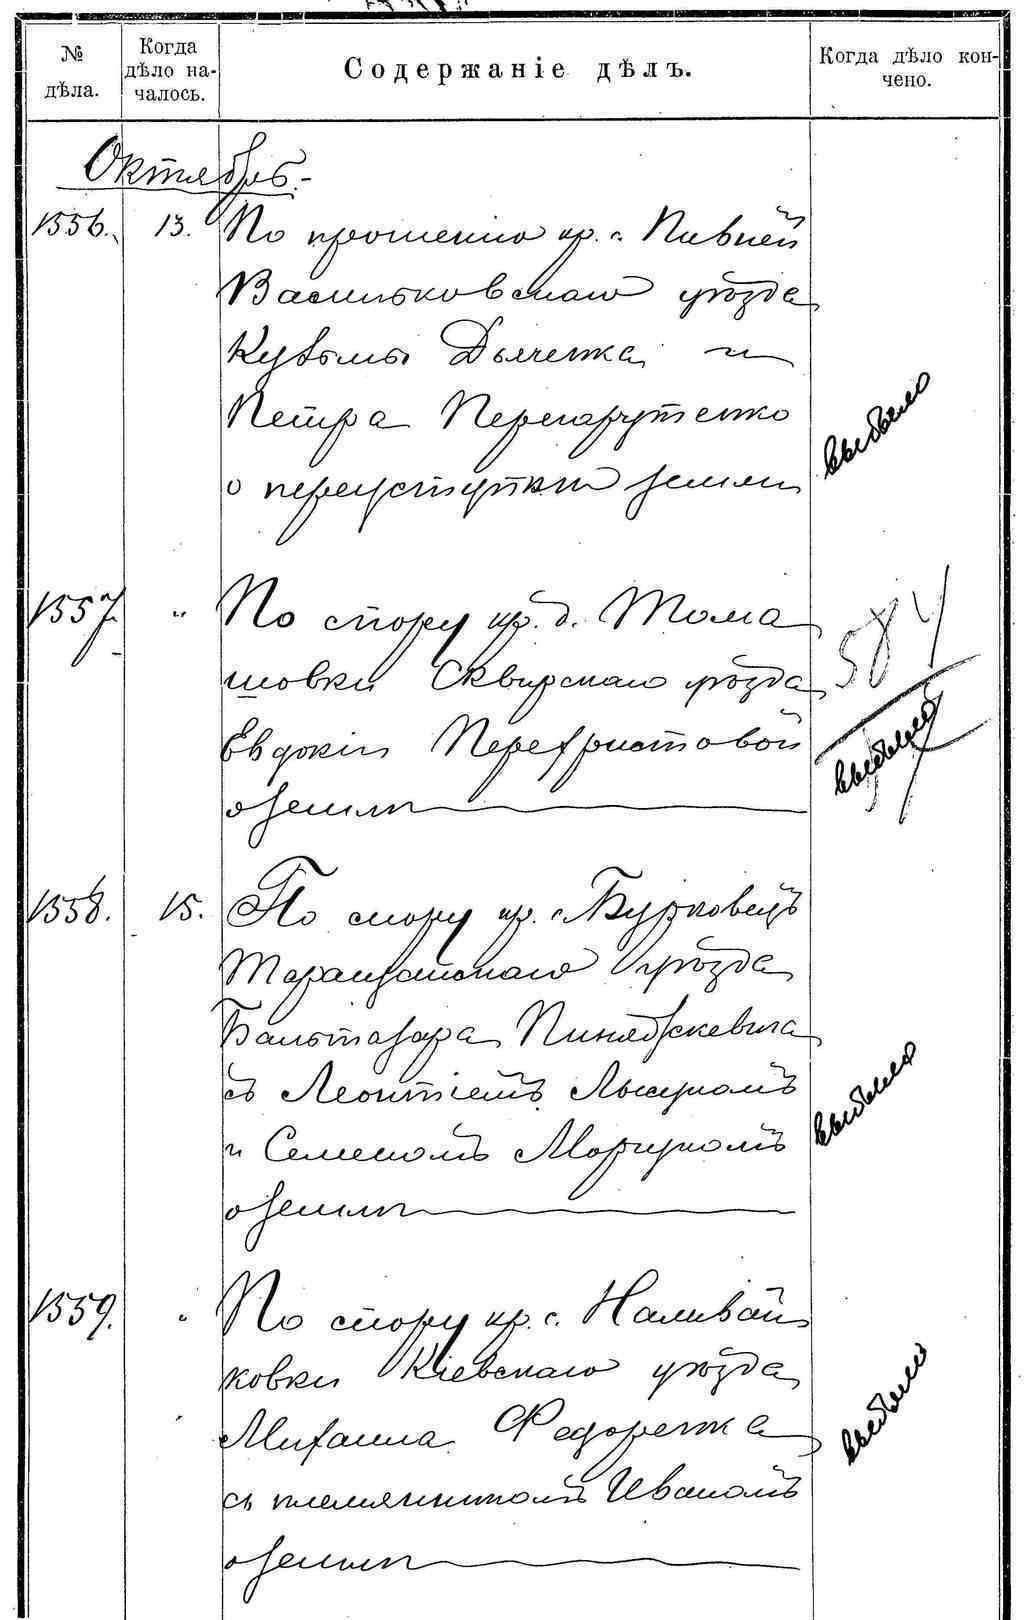 № дѣла.
Когда дѣло началось.
Содержаніе дѣлъ.
Когда дѣло кончено.
Октябрь.
1556. 13. По прошенію кр. с. Пивней
Васильковскаго уѣзда
Кузьмы Дьяченка и
Петра
о переуступки земли
выбыло
1557. " По спору кр. д. Тома
шовки Сквирскаго уѣзда
Евдокіи Перехристовой
о земли
584
выбыло
1558. 15. По спору кр. с. Бурковецъ
Таращанскаго уѣзда
Бальтазара
съ Леонтіемъ
и Семеномъ
о земли
выбыло
1559. " По спору кр. с. Наливай
ковки Кіевскаго уѣзда
Михаила Федоренка
съ племянникомъ Иваномъ
о земли
выбыло